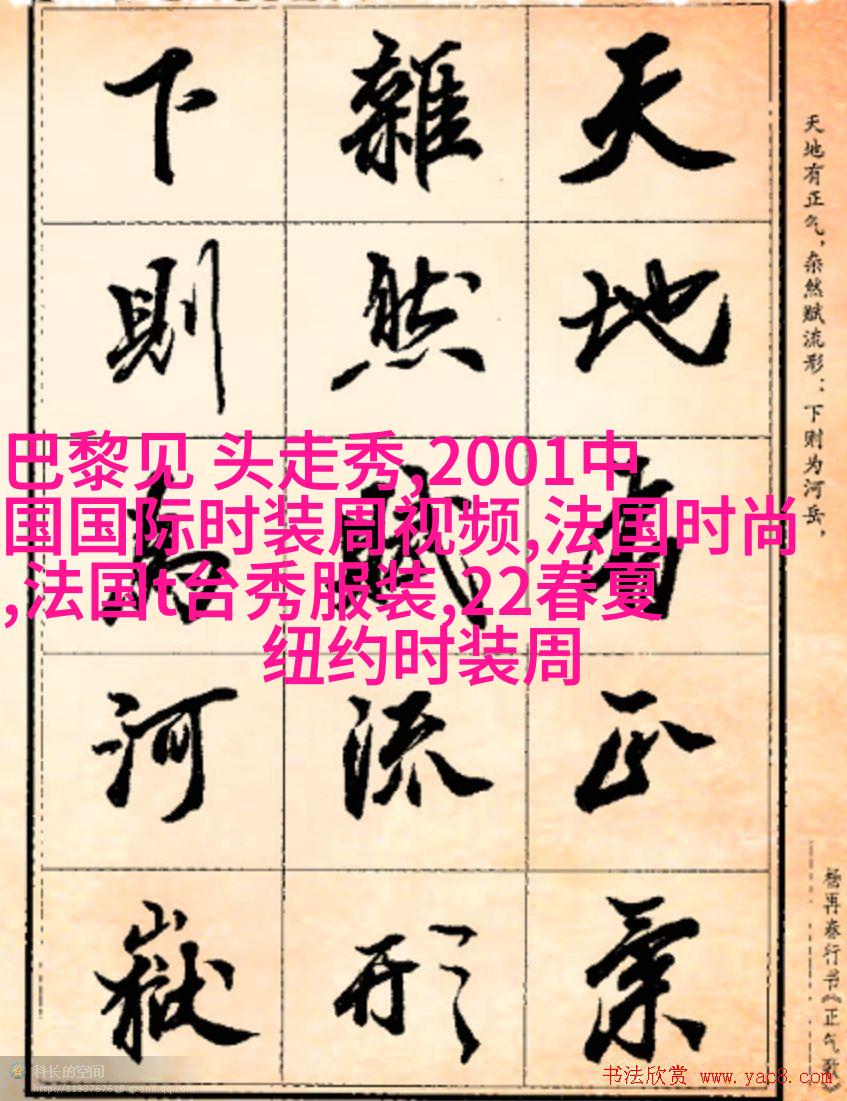 天地有正气，杂然赋流形：下则为河岳，
杨再春行书《正气歌》
天地有正氣
雜然賦流形
下則為河嶽
巴黎见 头走秀,2001中
国国际时装周视频,法国时尚
,法国t台秀服装,22春夏
纽约时装周
科长的空间
http://1193767618.qzone.qq.com
书法欣赏 www.yac8.com